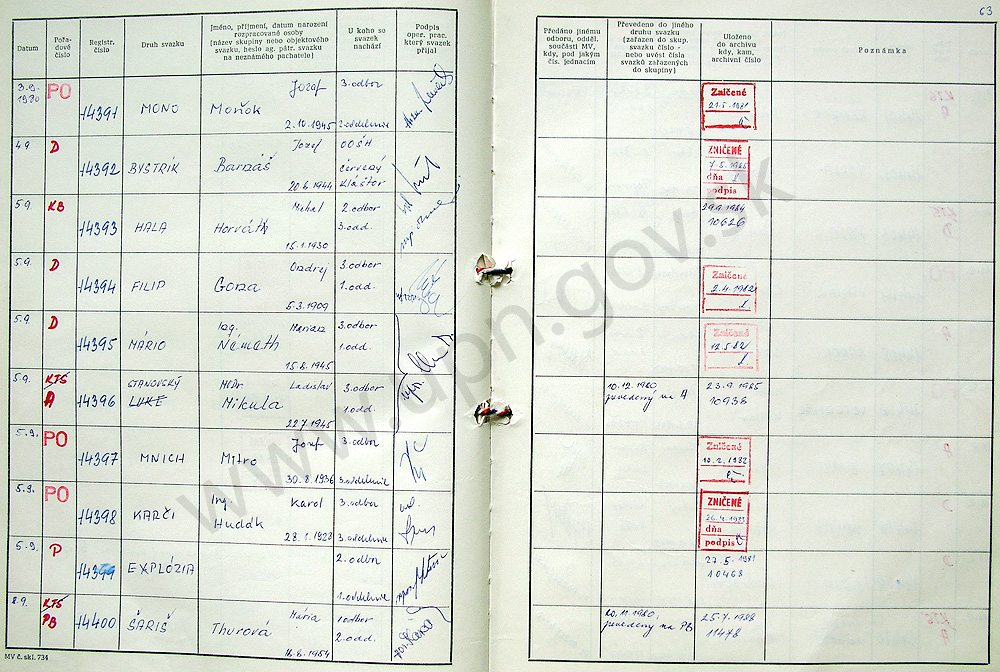 63
Datum
Pořadové číslo
Registr. číslo
Druh svazku
Jméno, příjmení, datum narození rozpracované osoby (název skupiny nebo objektového svazku, heslo ag. pátr. svazku na neznámého pachatele)
U koho se svazek nachází
Podpis oper. prac. který svazek přijal
Předáno jinému odboru, odděl. součásti MV, kdy, pod jakým čís. jednacím
Převedeno do jiného druhu svazku (zařazen do skup. svazku číslo - nebo uvést čísla svazků zařazených do skupiny)
Uloženo do archivu kdy, kam, archivní číslo
Poznámka
3.9. 1980 PO 14391 MONO Moňok Jozef 2.10.1945 3.odbor 2.oddelenie
Zničené 21.5.1981
4.9. D 14392 BYSTRÍK Barnáš Jozef 20.6.1944 OOŠH Červený Kláštor
ZNIČENÉ 7.5.1985 dňa podpis
5.9. KB 14393 HALA Horváth Michal 15.1.1930 2.odbor 3.odd.
29.9.1984 10626
5.9. D 14394 FILIP Gonza Ondrej 5.3.1909 3.odbor 1.odd.
Zničené 2.4.1982
5.9. D 14395 MÁRIO Ing. Németh Marian 15.8.1945 3.odbor 1.odd.
Zničené 12.5.82
5.9. KTS A 14396 STANOVSKÝ LUKE MUDr Mikula Ladislav 22.7.1945 3.odbor 1.odd.
10.12.1980 prevedený na A
23.9.1985 10938
5.9. PO 14397 MNICH Mitro Jozef 30.8.1936 3.odbor 3.oddelenie
Zničené 10.2.1982
5.9. PO 14398 KARČI Ing. Hudák Karol 28.1.1928 3.odbor 3.oddelenie
ZNIČENÉ dňa podpis
5.9. P 14399 EXPLÓZIA 2.odbor 1.oddelenie
27.5.1981 10468
8.9. KTS PB 14400 ŠARIŠ Thurová Mária 16.8.1954 1.odbor 2.odd.
20.11.1980 prevedený na PB
25.7.1988 11478
MV č. skl. 734
www.upn.gov.sk